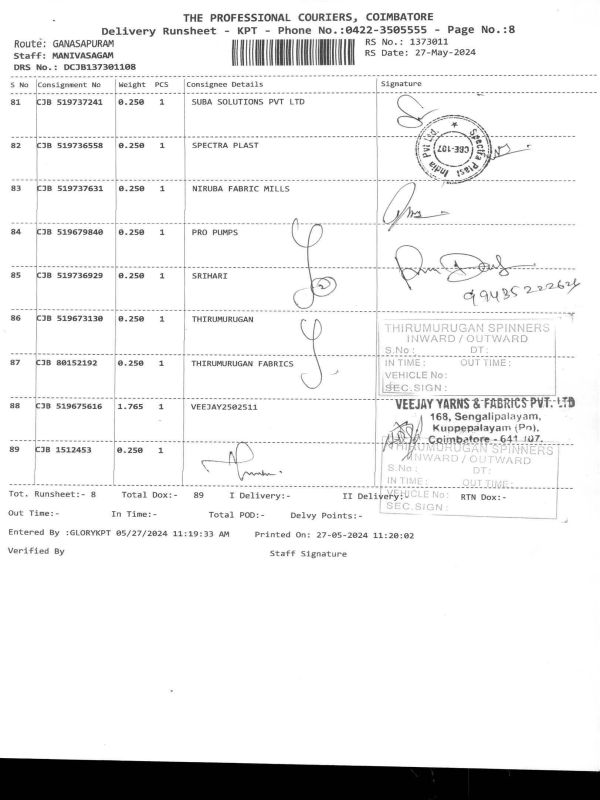 THE PROFESSIONAL COURIERS, COIMBATORE
Delivery Runsheet - KPT - Phone No.:0422-3505555 - Page No.:8
Route: GANASAPURAM RS No.: 1373011
Staff: MANIVASAGAM RS Date: 27-May-2024
DRS No.: DCJB137301108
S No Consignment No Weight PCS Consignee Details Signature
81 CJB 519737241 0.250 1 SUBA SOLUTIONS PVT LTD
82 CJB 519736558 0.250 1 SPECTRA PLAST
Spectra Plast India Pvt Ltd.
CBE-107
83 CJB 519737631 0.250 1 NIRUBA FABRIC MILLS
84 CJB 519679840 0.250 1 PRO PUMPS
85 CJB 519736929 0.250 1 SRIHARI
2
86 CJB 519673130 0.250 1 THIRUMURUGAN
THIRUMURUGAN SPINNERS
INWARD / OUTWARD
S.No : DT:
87 CJB 80152192 0.250 1 THIRUMURUGAN FABRICS
IN TIME : OUT TIME :
VEHICLE No:
SEC.SIGN :
88 CJB 519675616 1.765 1 VEEJAY2502511
VEEJAY YARNS & FABRICS PVT. LTD
168, Sengalipalayam,
Kuppepalayam (Po),
Coimbatore - 641 107.
89 CJB 1512453 0.250 1
THIRUMURUGAN SPINNERS
INWARD / OUTWARD
S.No : DT:
IN TIME : OUT TIME :
VEHICLE No:
SEC.SIGN :
Tot. Runsheet:- 8 Total Dox:- 89 I Delivery:- II Delivery:- RTN Dox:-
Out Time:- In Time:- Total POD:- Delvy Points:-
Entered By :GLORYKPT 05/27/2024 11:19:33 AM Printed On: 27-05-2024 11:20:02
Verified By Staff Signature